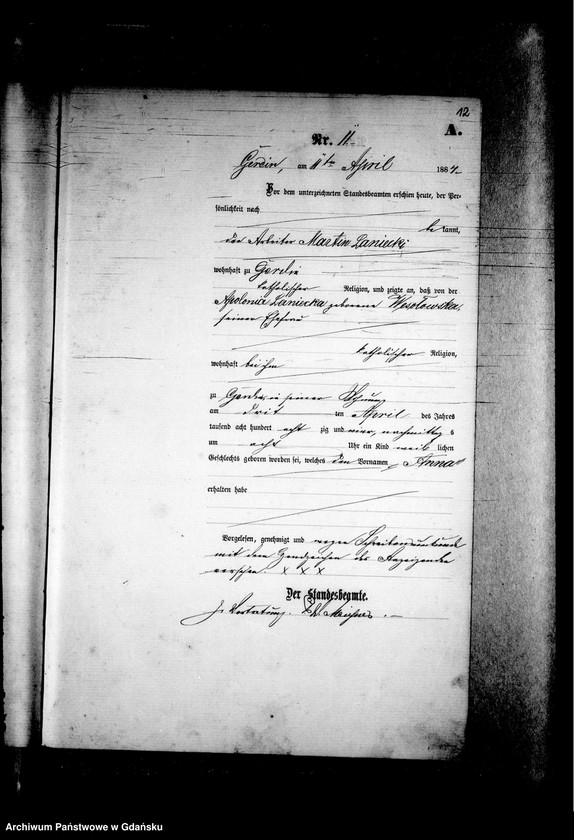 12
A.
Nr. 11.
Gerdin, am 11ten April 1884
Vor dem unterzeichneten Standesbeamten erschien heute, der Per-
sönlichkeit nach
be kannt,
der Arbeiter Martin Laniecki
wohnhaft zu Gerdin
katholischer Religion, und zeigte an, daß von der
Apolonia Laniecka geborene Wesołowska,
seiner Ehefrau
katholischer Religion,
wohnhaft bei ihm
zu Gerdin in seiner Wohnung
am drit ten April des Jahres
tausend acht hundert acht zig und vier, nachmittag s
um acht Uhr ein Kind weib lichen
Geschlechts geboren worden sei, welches den Vornamen Anna
erhalten habe
Vorgelesen, genehmigt und wegen Schreibensunkunde
mit dem Handzeichen des Anzeigenden
versehen. x x x
Der Standesbeamte.
In Vertretung.
Archiwum Państwowe w Gdańsku